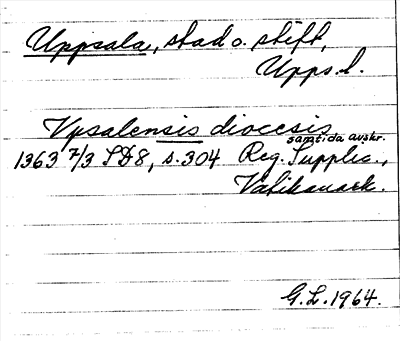 Uppsala, stad o. stift,
Upps. l.
Vpsalensis diocesis
samtida avskr.
1363 7/3 SD8, s. 304 Reg. Supplic.,
Vatikanark.
G.L. 1964.